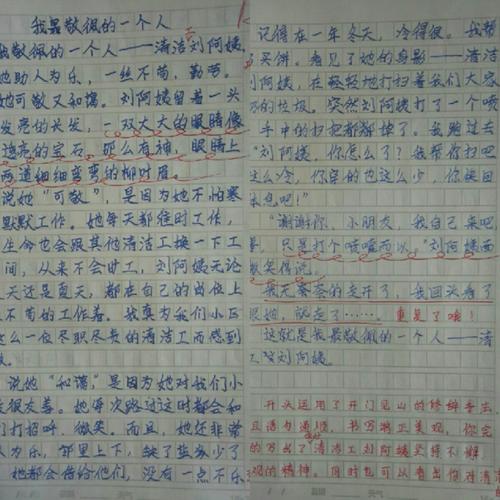 我最敬佩的一个人
我敬佩的一个人——清洁刘阿姨
她助人为乐，一丝不苟，勤劳。
她可敬又和蔼。刘阿姨留着一头
发亮的长发，一双大大的眼睛像
亮的宝石，那么有神，眼睛上
两道细细弯弯的柳叶眉。
说她“可敬”，是因为她不怕寒
默默工作。她每天都准时工作，
生命也会跟其他清洁工换一下工
间，从来不会旷工，刘阿姨无论
天还是夏天，都在自己的岗位上
不苟的工作着。我真为我们小区
么一位尽职尽责的清洁工而感到
说她“和蔼”，是因为她对我们小
友很友善。她每次路过这时都会和
们打招呼，微笑。而且，她还非常
人为乐，邻里上下，缺了盐或少了
她都会借给他们，没有一点不乐
记得在一年冬天，冷得很。我帮
买饼。看见了她的身影——清洁
刘阿姨，在轻轻地打扫着我们大家
的垃圾。突然刘阿姨打了一个喷
手中的扫把都都掉了。我跑过去
“刘阿姨，你怎么了？我帮你扫吧
这么冷，你穿的也这么少，你快回
休息吧！”
“谢谢你，小朋友，我自己来吧
，只是打个喷嚏而以。”刘阿姨面
微笑得说。
我无奈的走开了，我回头看了
眼她，就走了……. 重复了哦！
这就是我最敬佩的一个人——清
刘阿姨。
开头运用了开门见山的修辞手法
且语句通顺，书写端正美观，你完
的写出了清洁工刘阿姨
的精神。同时也可以看出你对清